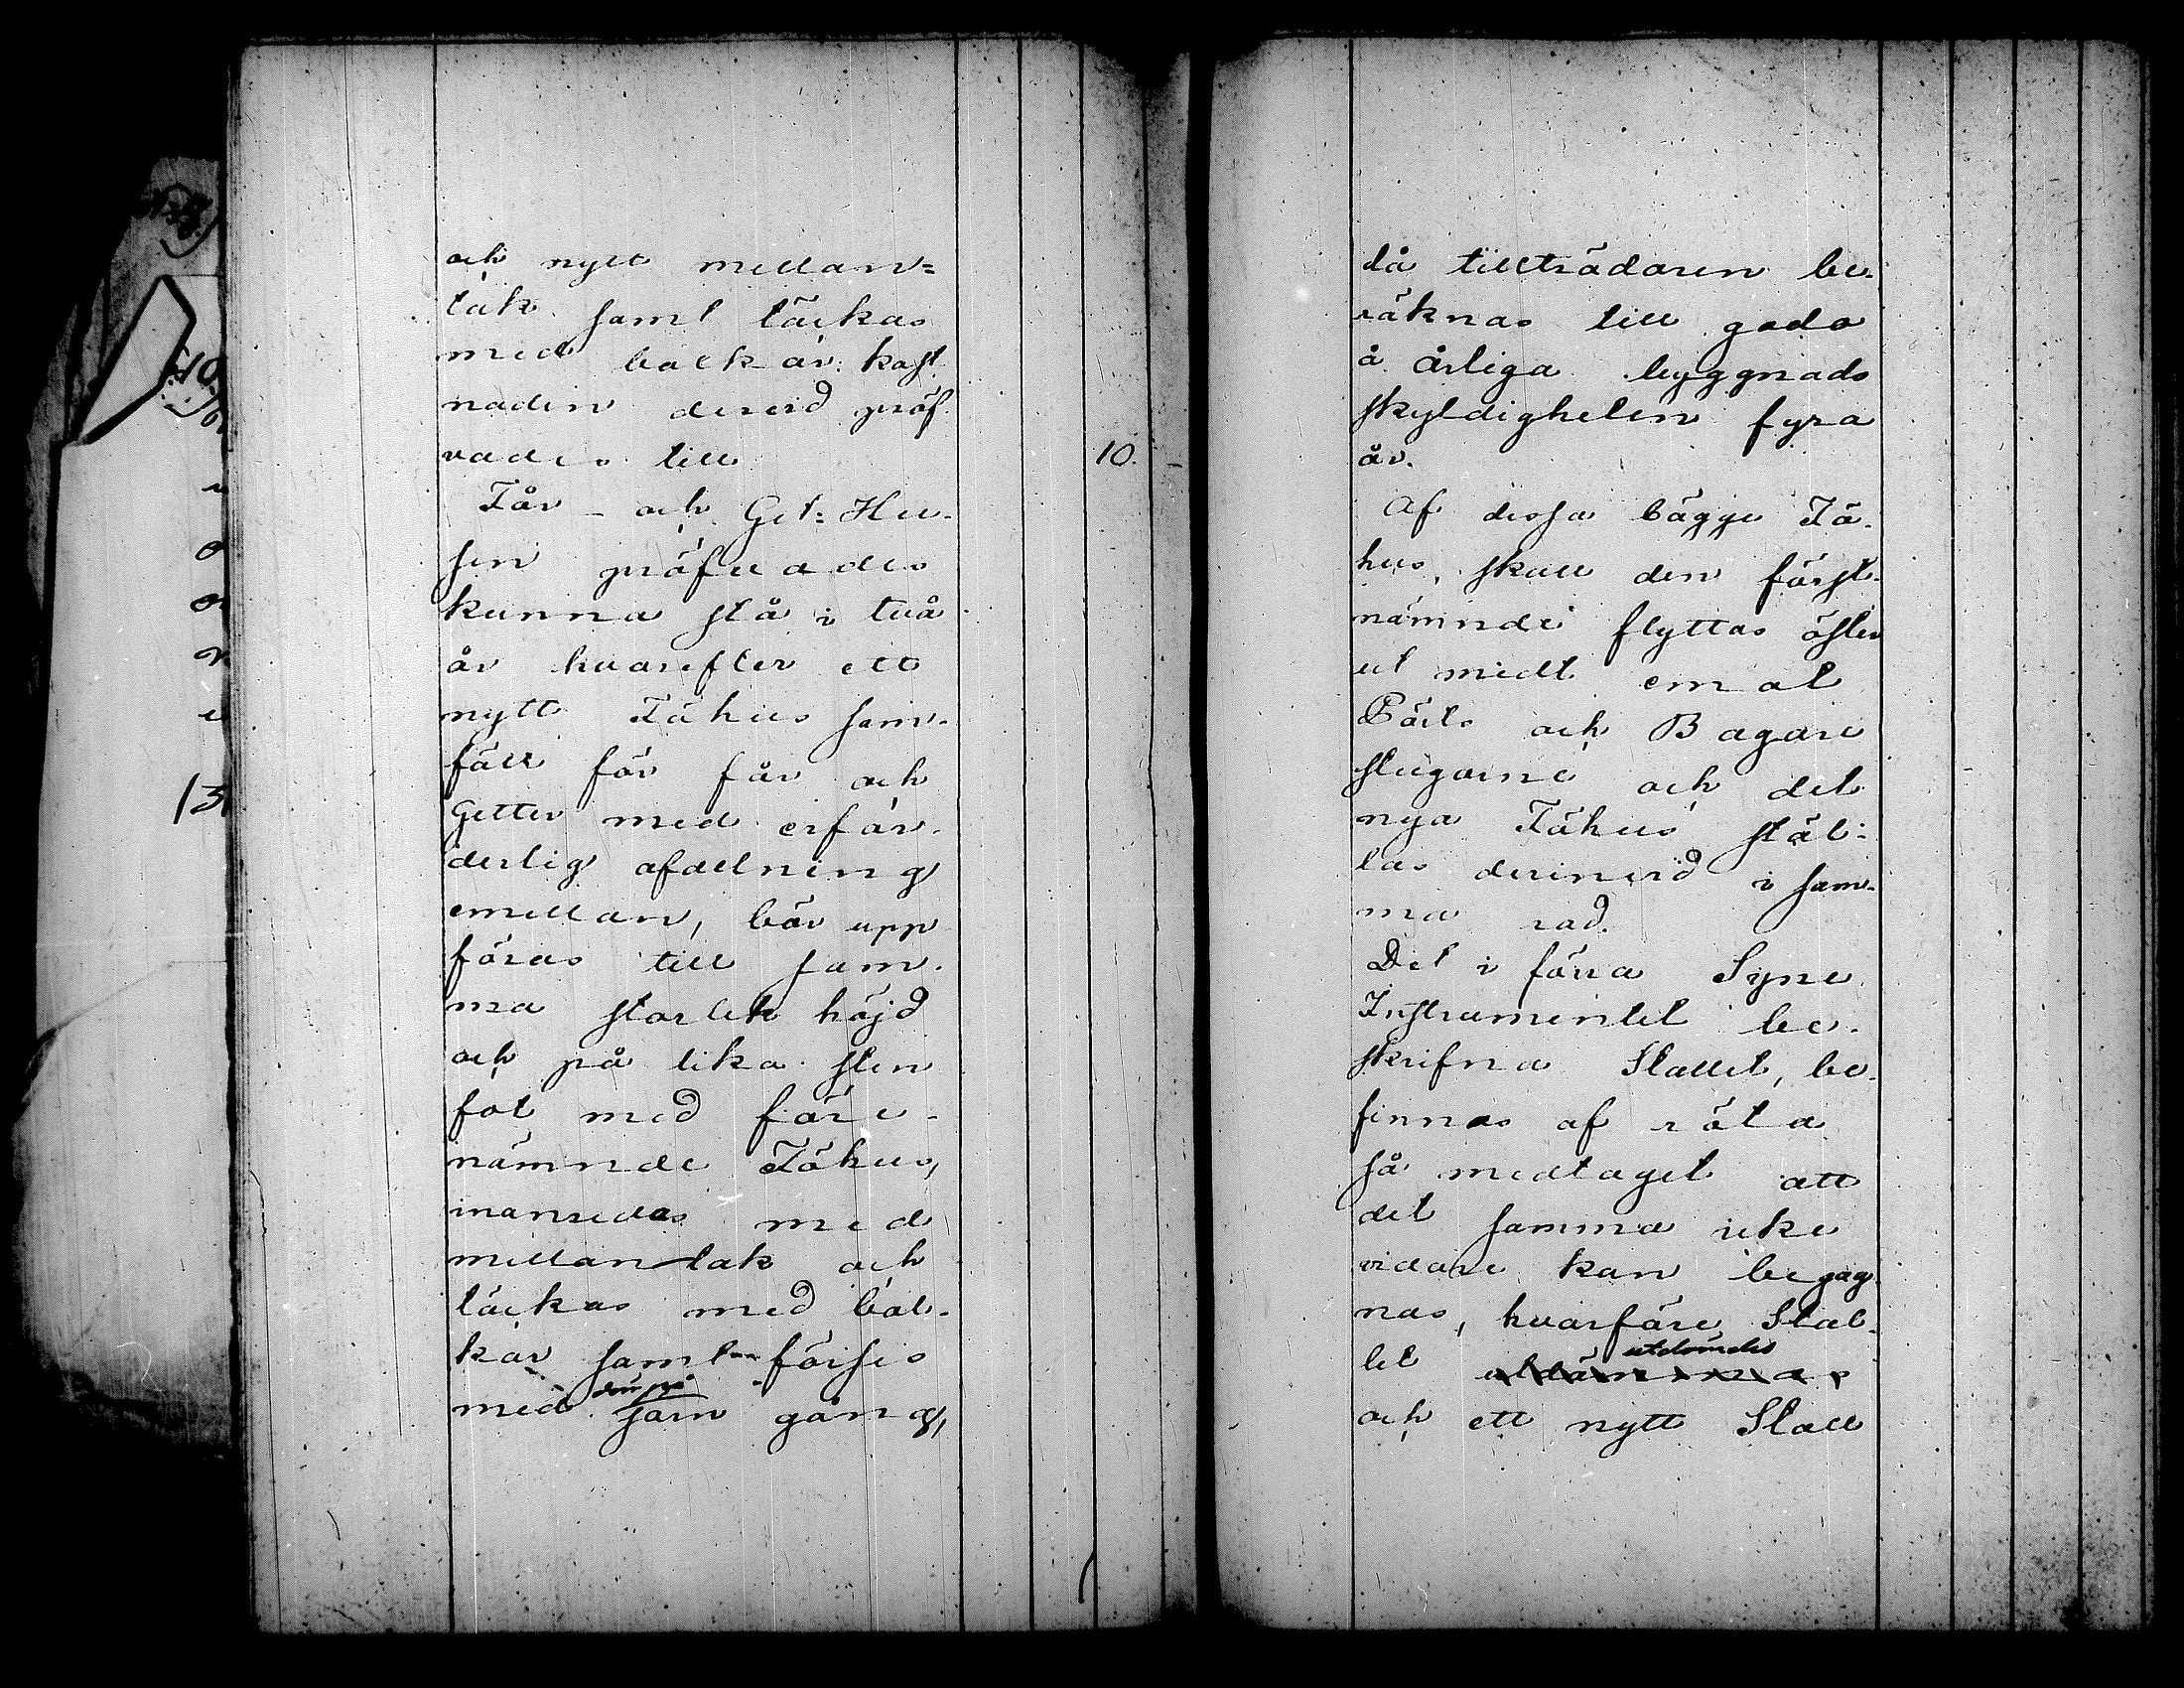 och nytt mellan=
tak samt täckas
med balkar: kost
naden dervid pröf
vades till 10.
Får- och Get-Hu-
sen pröfvades
kunna stå i två
år hvarefter ett
nytt Fähus sam-
fält för får och
Getter med erfor-
derlig afdelning
emellan, bör upp
föras till sam-
ma storlek höjd
och på lika sten
fot med före-
nämnde Fähus,
inanredas med
mellantak och
täckas med bal-
kar samt förses
med jern gång,
då tillträdaren be-
räknas till godo
å årliga byggnads
skyldigheten fyra
år.
Af dessa bägge Fä-
hus, skall den först-
nämnde flyttas öster
ut midt emot
Pört och Bagare
stugorne och det
nya Fähus stäl-
las derinvid i sam-
ma rad.
Det i förra Syne
Instrumentet be-
skrifna Stallet, be-
finnas af röta
så medtaget att
det samma icke
vidare kan begag
nas, hvarföre Stal-
let utdömdes
och ett nytt Stall